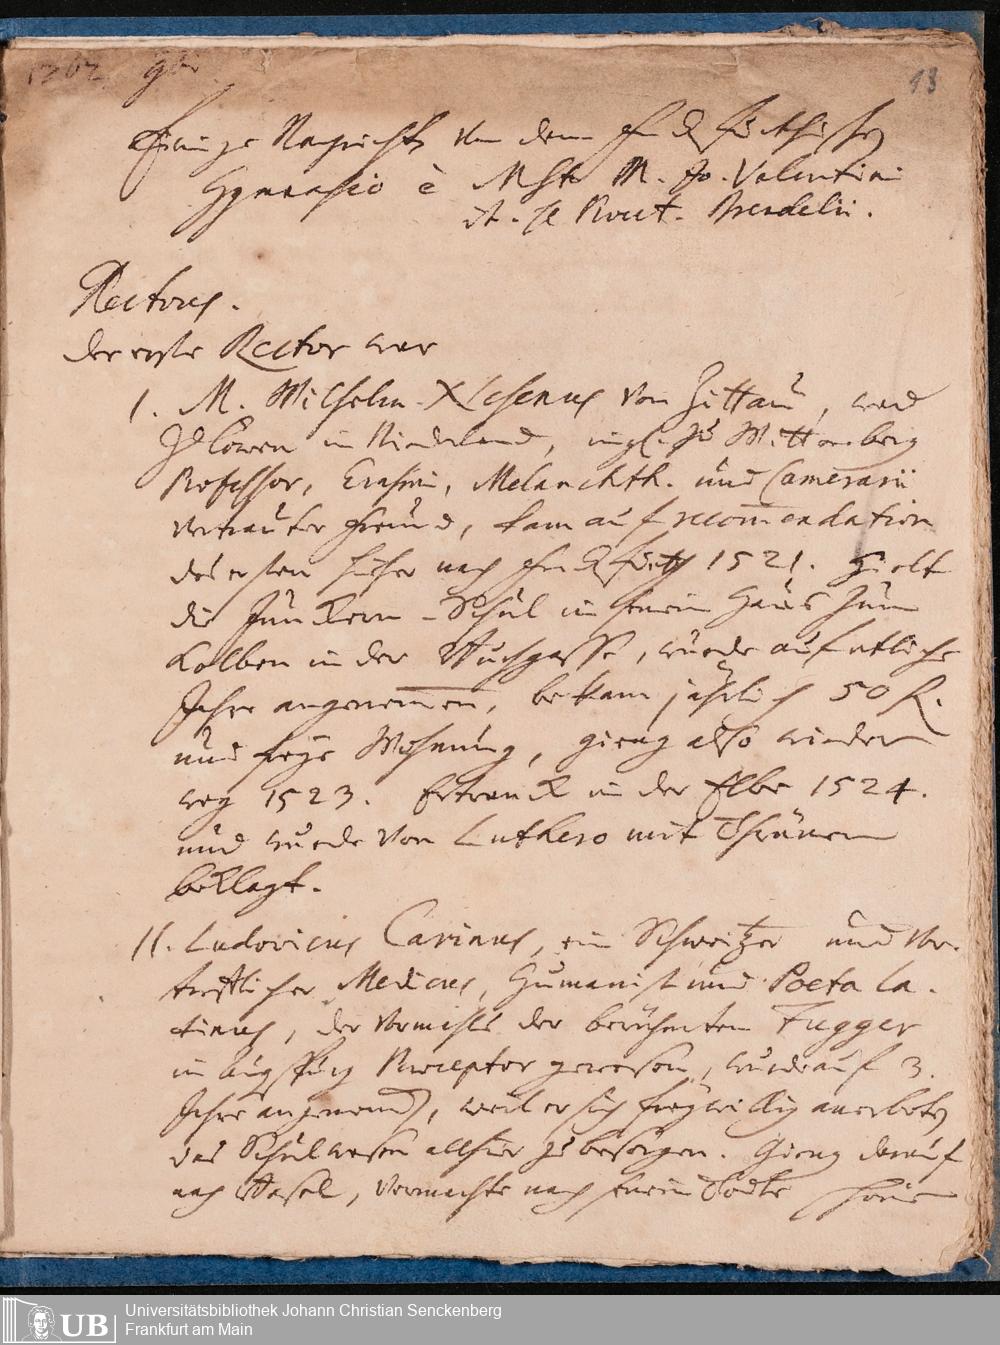 13
Einige Nachricht von dem Franckfurthischen
Gymnasio è MSto M. Jo. Valentini
Rect. Brendelii.
Rectores.
Der erste Rector war
I. M. Wilhelm Nesenus von Zittau, ward
zu Löwen in Niederland, ingl. zu Wittenberg
Professor, Erasmi, Melanchth. und Camerarii
vertrauter Freund, kam auf recom̅endation
des ersten hieher nach Franckfurth 1521. hielt
die Junckern-Schul in seinem Haus zum
Kolben in der Buchgasse, wurde auf etliche
Jahre angenom̅en, bekam jährlich 50 fl.
und freye Wohnung, gieng also wieder
weg 1523. Ertranck in der Elbe 1524.
und wurde von Luthero mit Thränen
beklagt.
II. Ludovicus Carinus, ein Schweitzer und vor-
trefflicher Medicus, Humanist und Poeta La-
tinus, der vormahls der berühmten Fugger
in Augspurg Præceptor gewesen, wurde auf 3.
Jahre angenom̅en, weil er sich freywillig anerboten
das Schulwesen allhier zu besorgen. Gieng darauf
nach Basel, vermachte nach seinem Todte
UB
Universitätsbibliothek Johann Christian Senckenberg
Frankfurt am Main